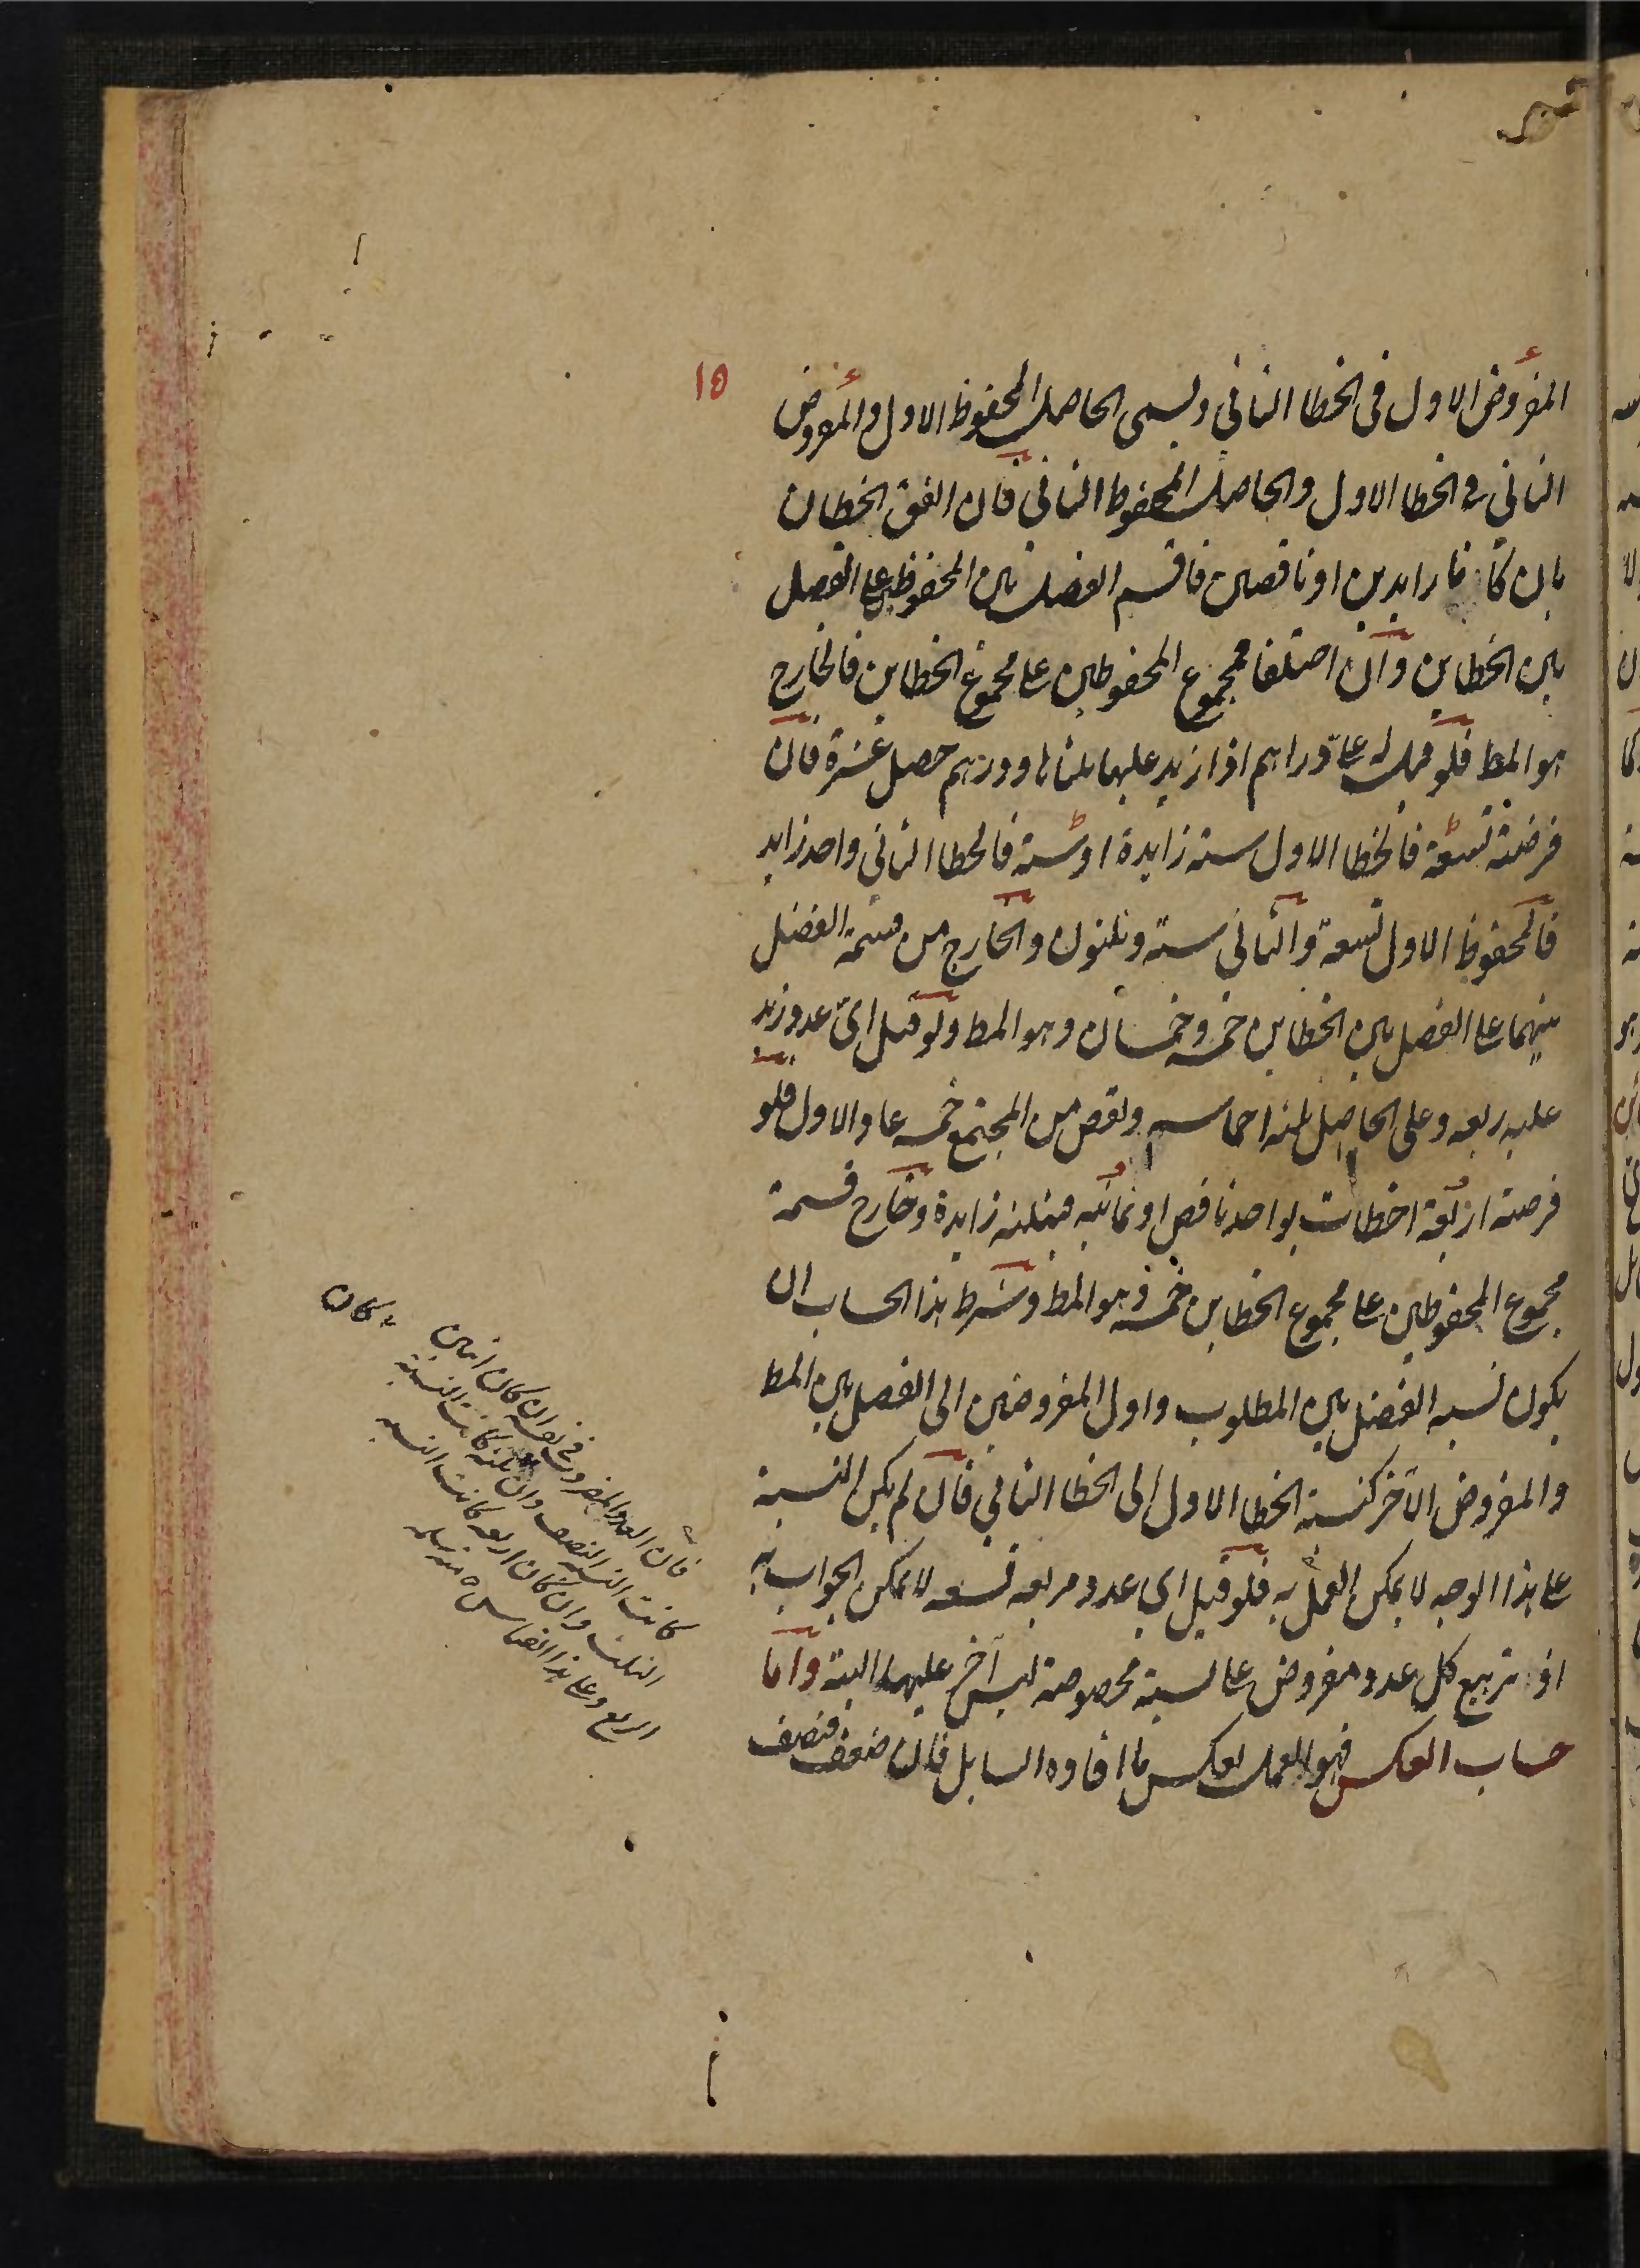 ١٥
المفروض الاول فى الخطا الثانى ويسمى الحاصل المحفوظ الاول والمفروض
الثانى فى الخطا الاول والحاصل المحفوظ الثانى فان اتفق الخطان
بان كانا زايدين او ناقصين فاقسم الفضل بين المحفوظين على الفضل
بين الخطاين وان اختلفا فمجموع المحفوظين على مجموع الخطاين فالخارج
هو المط فلو قيل له على دراهم اذا زيد عليها ثلثاها ودرهم حصل عشرة فان
فرضته تسعة فالخطا الاول ستة زايدة او ستة فالخطا الثانى واحد زايد
فالمحفوظ الاول تسعة والثانى ستة وثلثون والخارج من قسمة الفضل
بينهما على الفضل بين الخطاين خمسة وخمسان وهو المط ولو قيل اى عدد زيد
عليه ربعه وعلى الحاصل ثلثة اخماسه ونقص من المجتمع خمسه عاد الاول فلو
فرضته اربعة اخطات بواحد ناقص او ثمانية فبثلثة زايدة وخارج قسمة
مجموع المحفوظين على مجموع الخطاين خمسة وهو المط وشرط هذا الحساب ان
يكون نسبة الفضل بين المطلوب واول المفروضين الى الفضل بين المط
والمفروض الآخر كنسبة الخطا الاول الى الخطا الثانى فان لم يكن النسبة
على هذا الوجه لا يمكن العمل به فلو قيل اى عدد مربعه تسعه لا يمكن الجواب به
اذ تربيع كل عدد مفروض على نسبة مخصوصة ليس آخر عليها البتة واما
حساب العكس فهو العمل بعكس ما افاده السايل فان ضعف فنصف
فان العدد المضروب فى نفسه ان كان اثنين كان
كانت النسبة النصف وان ثلثة كانت النسبة
الثلث وان كان اربعه كانت النسبة
الربع وعلى هذا القياس منه سلمه